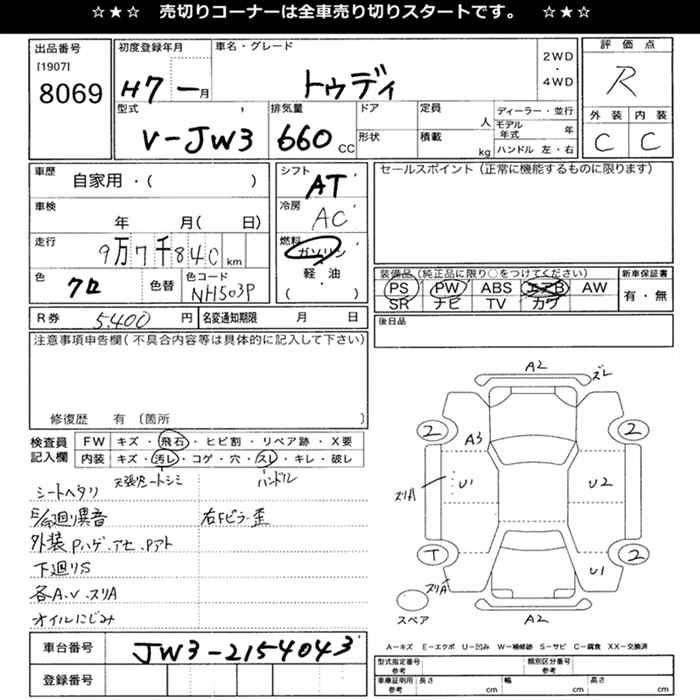 ☆★☆ 売切りコーナーは全車売り切りスタートです。 ☆★☆
出品番号 初度登録年月 車名・グレード 評価点
[1907] 8069 H7 一月 トゥデイ 2WD・4WD R
型式 排気量 ドア 定員 人 ディーラー・並行 外装 内装
V-JW3 660 CC 形状 積載 kg モデル年式 年 ハンドル 左・右 C C
車歴 自家用・( ) シフト AT セールスポイント(正常に機能するものに限ります)
車検 年 月( 日) 冷房 AC
走行 9万7千840 km 燃料 ガソリン
軽・油
( )
色 クロ 色替 色コード NH503P
装備品(純正品に限り○をつけてください) 新車保証書
PS PW ABS エアB AW 有・無
SR ナビ TV カワ
R券 5,400 円 名変通知期限 月 日 後日品
注意事項申告欄(不具合内容等は具体的に記入して下さい)
修復歴 有 〔箇所 〕
検査員記入欄 FW キズ・飛石・ヒビ割・リペア跡・X要
内装 キズ・汚レ・コゲ・穴・スレ・キレ・破レ
天張・シートシミ ハンドル
シートヘタリ
E/G廻リ異音 右Fピラー歪
外装Pハゲ、アセ、Pアト
下廻リS
各A、V、スリA
オイルにじみ
A2 ズレ
2 2
A3
スリA U1 U2
T 2
スリA U1
スペア A2
A-キズ E-エクボ U-凹み W-補修跡 S-サビ C-腐食 XX-交換済
車台番号 JW3-2154043
登録番号
型式指定番号 参考 類別区分番号 参考
車庫証明用 参考 長さ cm 幅 cm 高さ cm